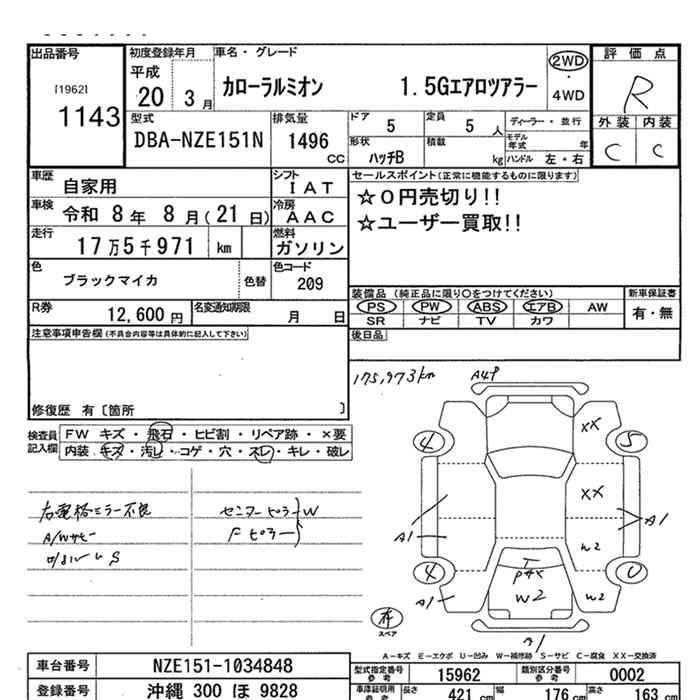 出品番号
[1962]
1143
初度登録年月
平成
20 3月
車名・グレード
カローラルミオン 1.5Gエアロツアラー
2WD
・
4WD
評価点
R
外装 内装
C C
型式
DBA-NZE151N
排気量
1496
CC
ドア
5
定員
5 人
ディーラー・並行
形状
ハッチB
積載
kg
モデル年式 年
ハンドル 左・右
車歴
自家用
シフト
IAT
車検
令和 8年 8月(21日)
冷房
AAC
走行
17万5千971 km
燃料
ガソリン
色
ブラックマイカ
色替
色コード
209
R券
12,600 円
名変通知期限
月 日
セールスポイント(正常に機能するものに限ります)
☆0円売切り!!
☆ユーザー買取!!
装備品 (純正品に限り○をつけてください)
PS PW ABS エアB AW
SR ナビ TV カワ
新車保証書
有・無
後日品
注意事項申告欄(不具合内容等は具体的に記入して下さい)
修復歴 有〔箇所 〕
検査員記入欄
FW キズ・飛石・ヒビ割・リペア跡・×要
内装 キズ・汚レ・コゲ・穴・スレ・キレ・破レ
右電格ミラー不良
A/Wサビー
センターピラー W
Fピラー
175,973km
A4P
XX
4 5
XX
A1 A1
W2
4
A1
W2 W2
スペア
A-キズ E-エクボ U-凹み W-補修跡 S-サビ C-腐食 XX-交換済
車台番号
NZE151-1034848
登録番号
沖縄 300 ほ 9828
型式指定番号
参考
15962
類別区分番号
参考
0002
車庫証明用
参考
長さ 421 cm
幅 176 cm
高さ 163 cm